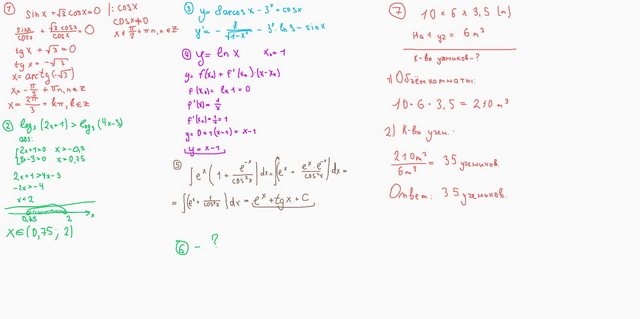 ① sinx + √3 cosx = 0 |: cosx
sinx/cosx + √3 cosx/cosx = 0
cosx ≠ 0
x ≠ π/2 + πn, n∈z
tgx + √3 = 0
tgx = -√3
x = arctg(-√3)
x = -π/3 + πn, n∈z
x = 2π/3 + kπ, k∈z
② log₃(2x+1) > log₃(4x-3)
{2x+1>0 x>-0,5
x>0,75
2x+1 > 4x-3
-2x > -4
x < 2
0,75 2 x
x∈(0,75; 2)
③ y = 8arcosx - 3ˣ + cosx
y' = - 8/√(1-x²) - 3ˣ·ln3 - sinx
④ y = lnx x₀ = 1
y = f(x₀) + f'(x₀)·(x-x₀)
f(x₀) = ln1 = 0
f'(x₀) = 1/1 = 1
y = 0+1(x-1) = x-1
y = x-1
⑤ ∫eˣ(1 + e⁻ˣ/cos²x)dx = ∫(eˣ + eˣ·e⁻ˣ/cos²x)dx =
= ∫(eˣ + 1/cos²x)dx = eˣ + tgx + C
⑥ - ?
⑦ 10 × 6 × 3,5 (м)
На 1 уч = 6 м³
К-во учеников - ?
1) Объём комнаты:
10·6·3,5 = 210 м³
2) К-во учен.:
210м³/6м³ = 35 учеников.
Ответ: 35 учеников.